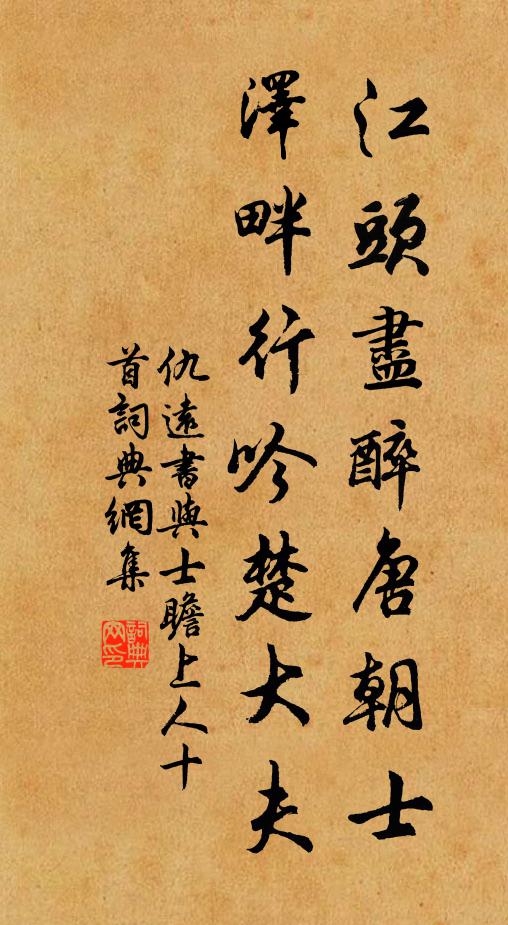 江頭盡醉唐朝士
澤畔行吟楚大夫
仇遠書與士瞻上人十
首詞典網集
詞典网印